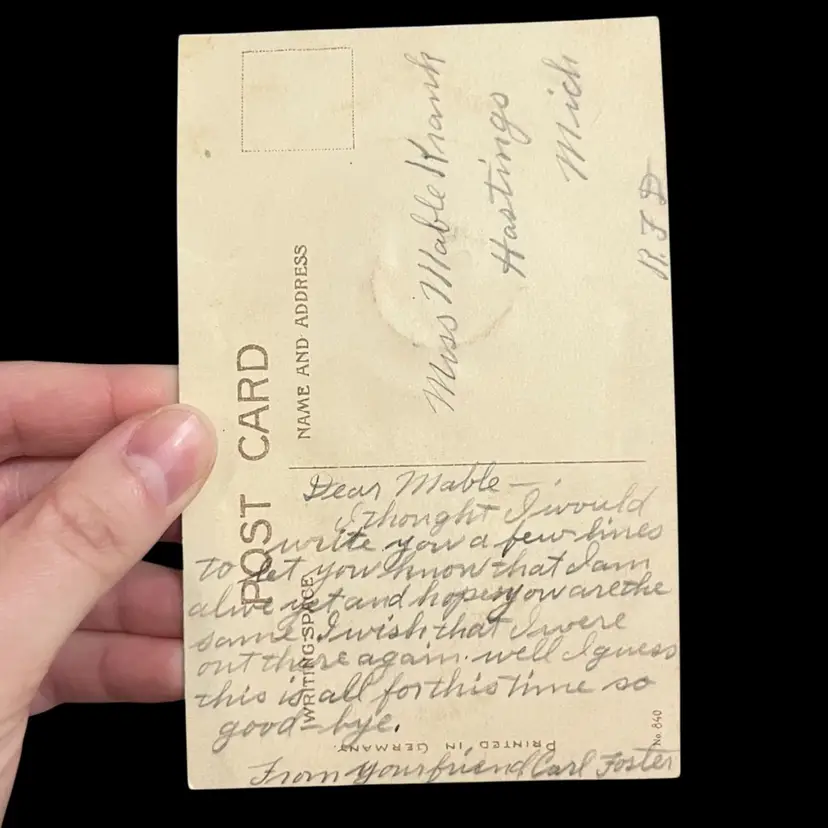 POST CARD
NAME AND ADDRESS
WRITING SPACE
Miss Mable Krank
Hastings
Mich
R.F.D
Dear Mable—
I thought I would
write you a few lines
to let you know that I am
alive yet and hope you are the
same I wish that I were
out there again. well I guess
this is all for this time so
good-bye.
From your friend Carl Foster
PRINTED IN GERMANY.
No. 840